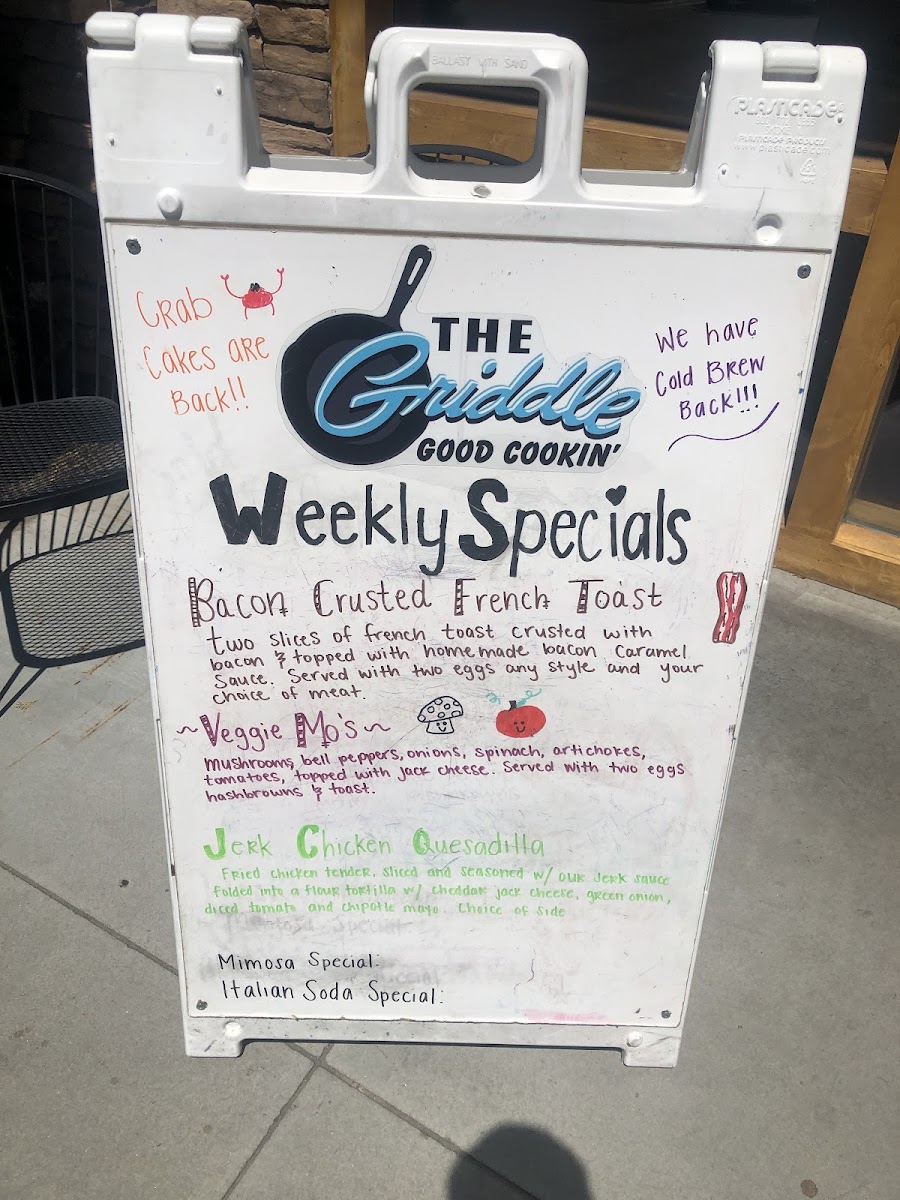 BALLAST WITH SAND
PLASTICADE
PLASTICADE PRODUCTS
www.plasticade.com
Crab
Cakes are
Back!!
THE
Griddle
GOOD COOKIN'
We have
Cold Brew
Back!!!
Weekly Specials
Bacon Crusted French Toast
two slices of french toast crusted with
bacon & topped with homemade bacon caramel
sauce. Served with two eggs any style and your
choice of meat.
~Veggie Mo's~
mushrooms, bell peppers, onions, spinach, artichokes,
tomatoes, topped with jack cheese. Served with two eggs
hashbrowns & toast.
Jerk Chicken Quesadilla
Fried chicken tender, sliced and seasoned w/ our jerk sauce
folded into a flour tortilla w/ cheddar jack cheese, green onion,
diced tomato and chipotle mayo. Choice of side
Mimosa Special:
Italian Soda Special: